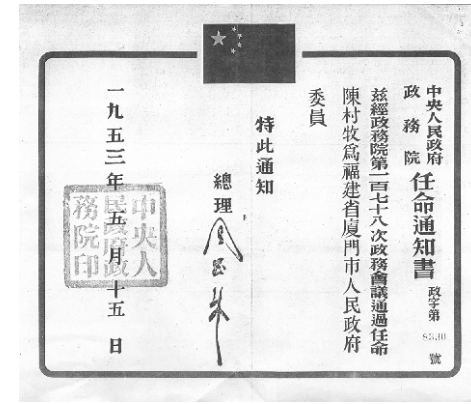 中央人民政府
政務院
任命通知書
政字第
號
兹經政務院第一百七十八次政務會議通過任命
陳村牧爲福建省廈門市人民政府
委員
特此通知
總理
周恩來
一九五三年五月十五日
中央人
民政府政
務院印